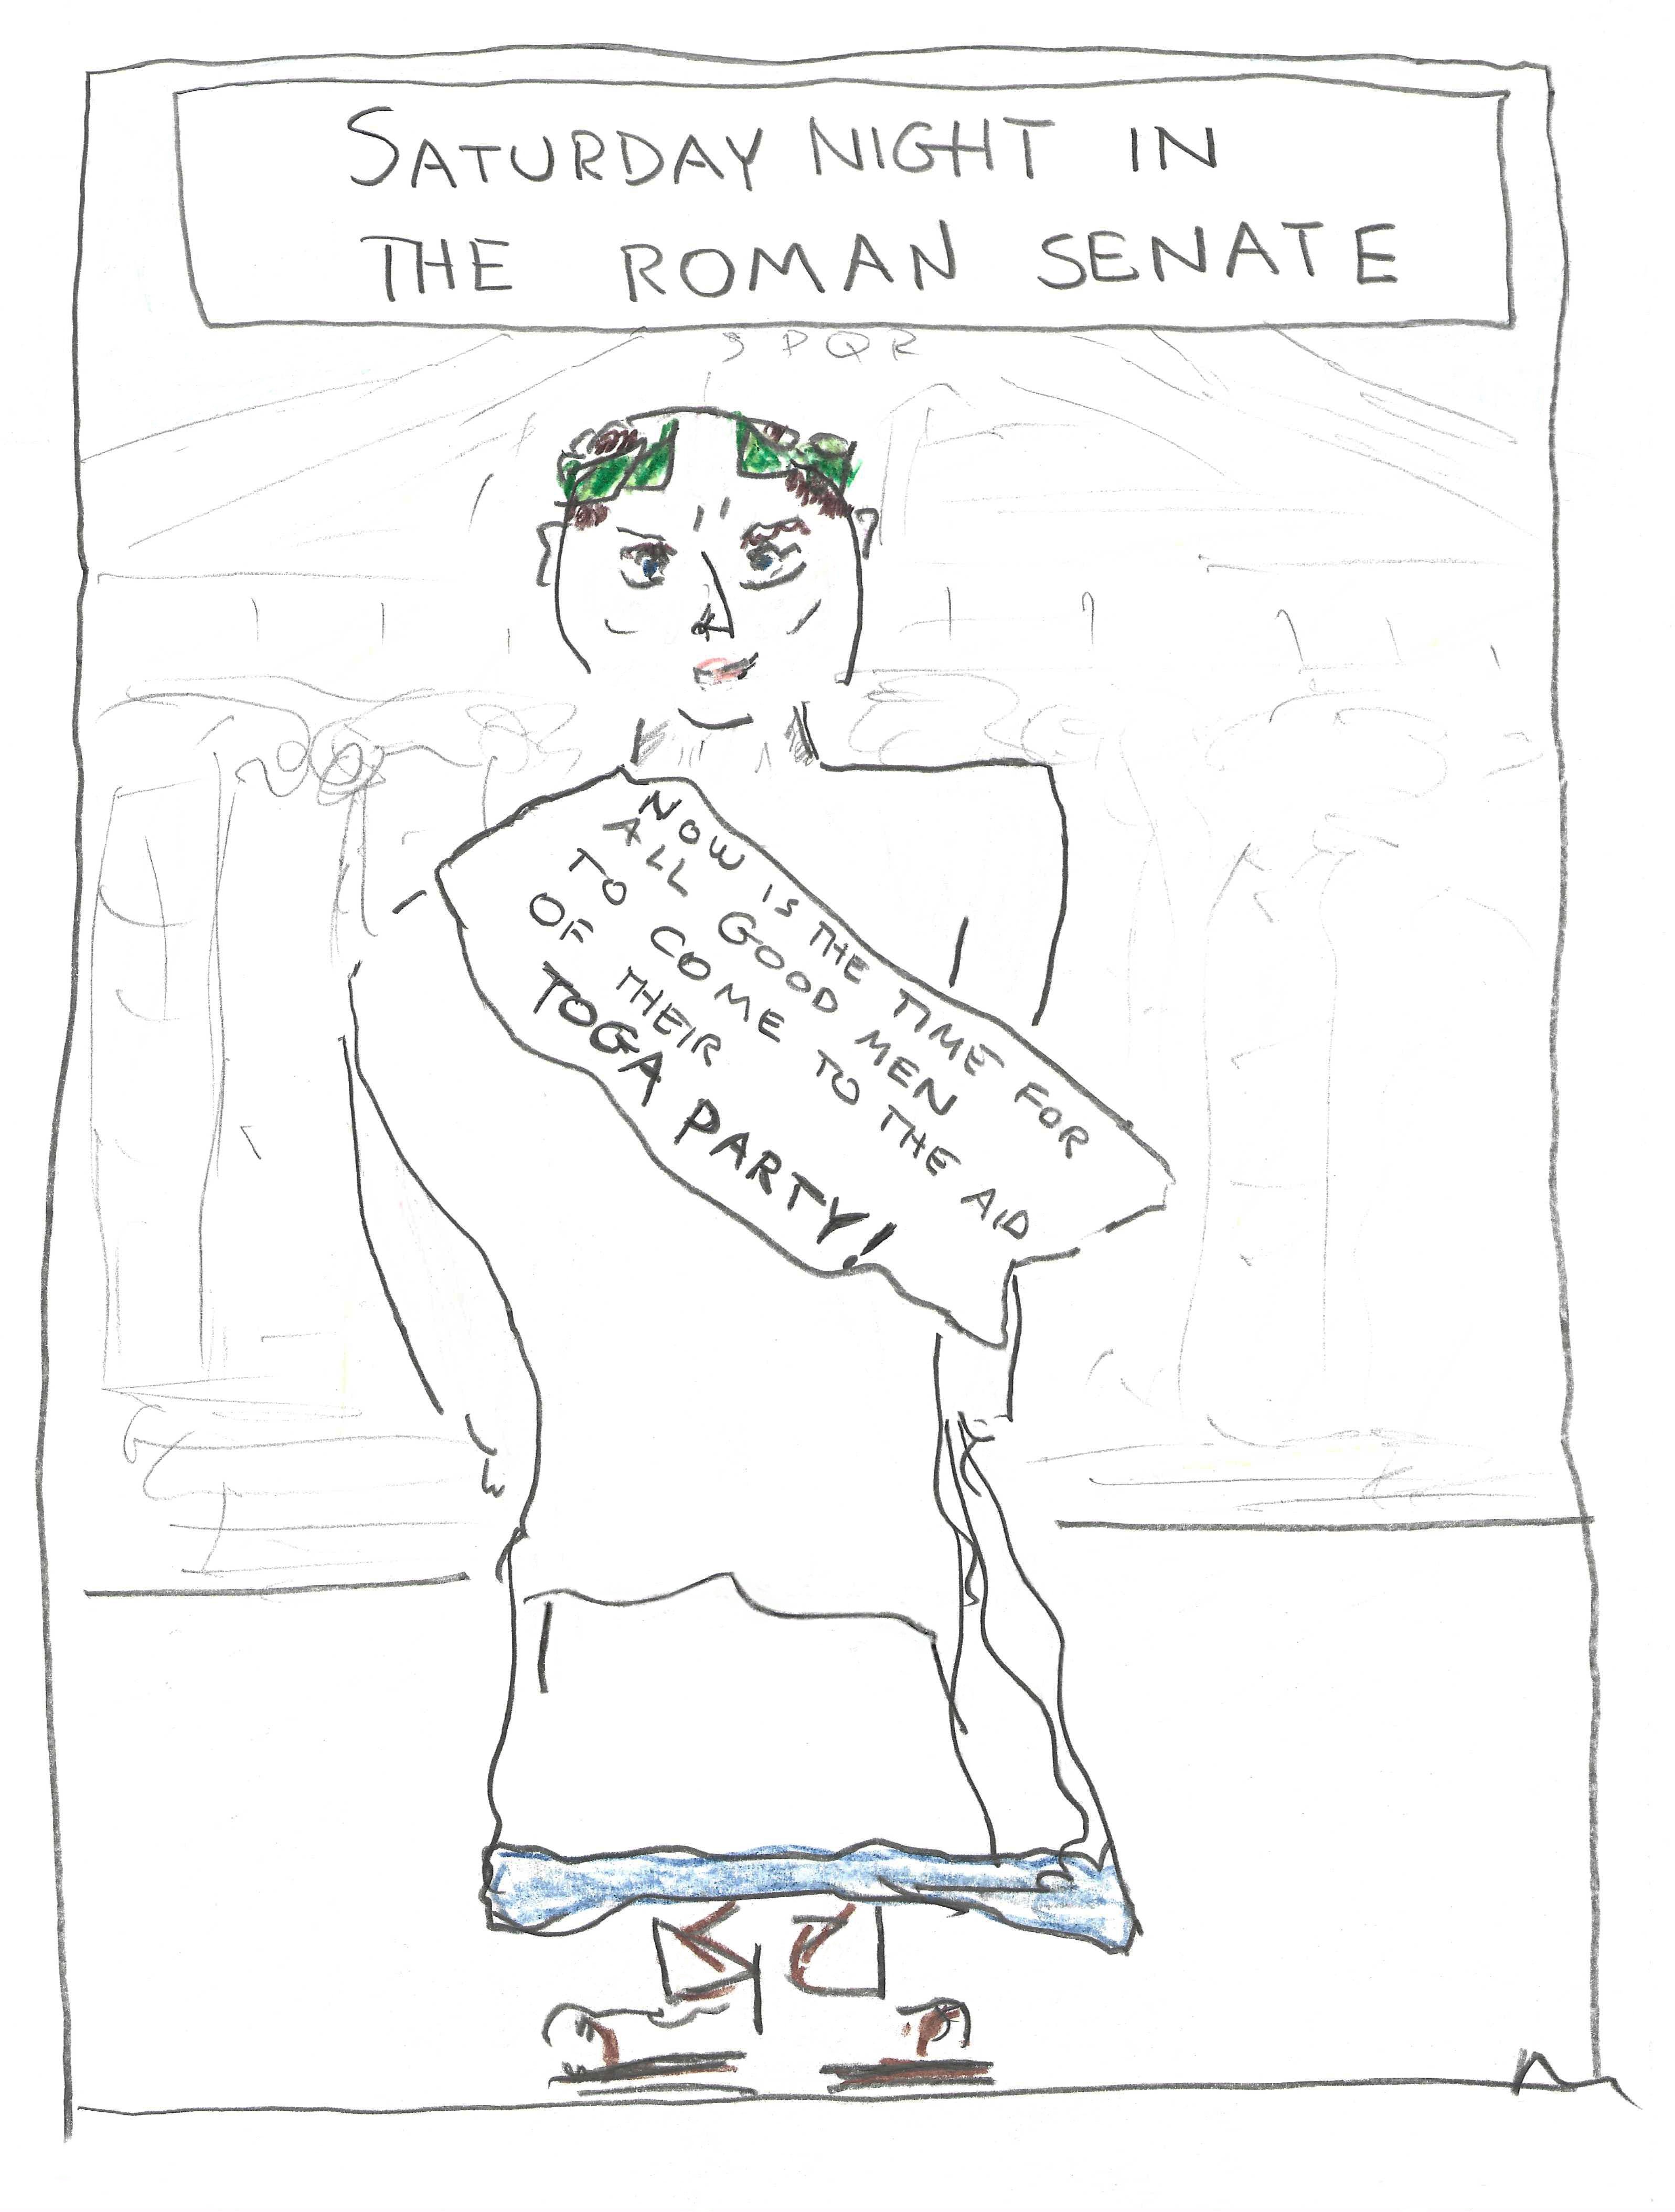 SATURDAY NIGHT IN
THE ROMAN SENATE
SPQR
NOW IS THE TIME FOR
ALL GOOD MEN
TO COME TO THE AID
OF THEIR
TOGA PARTY!